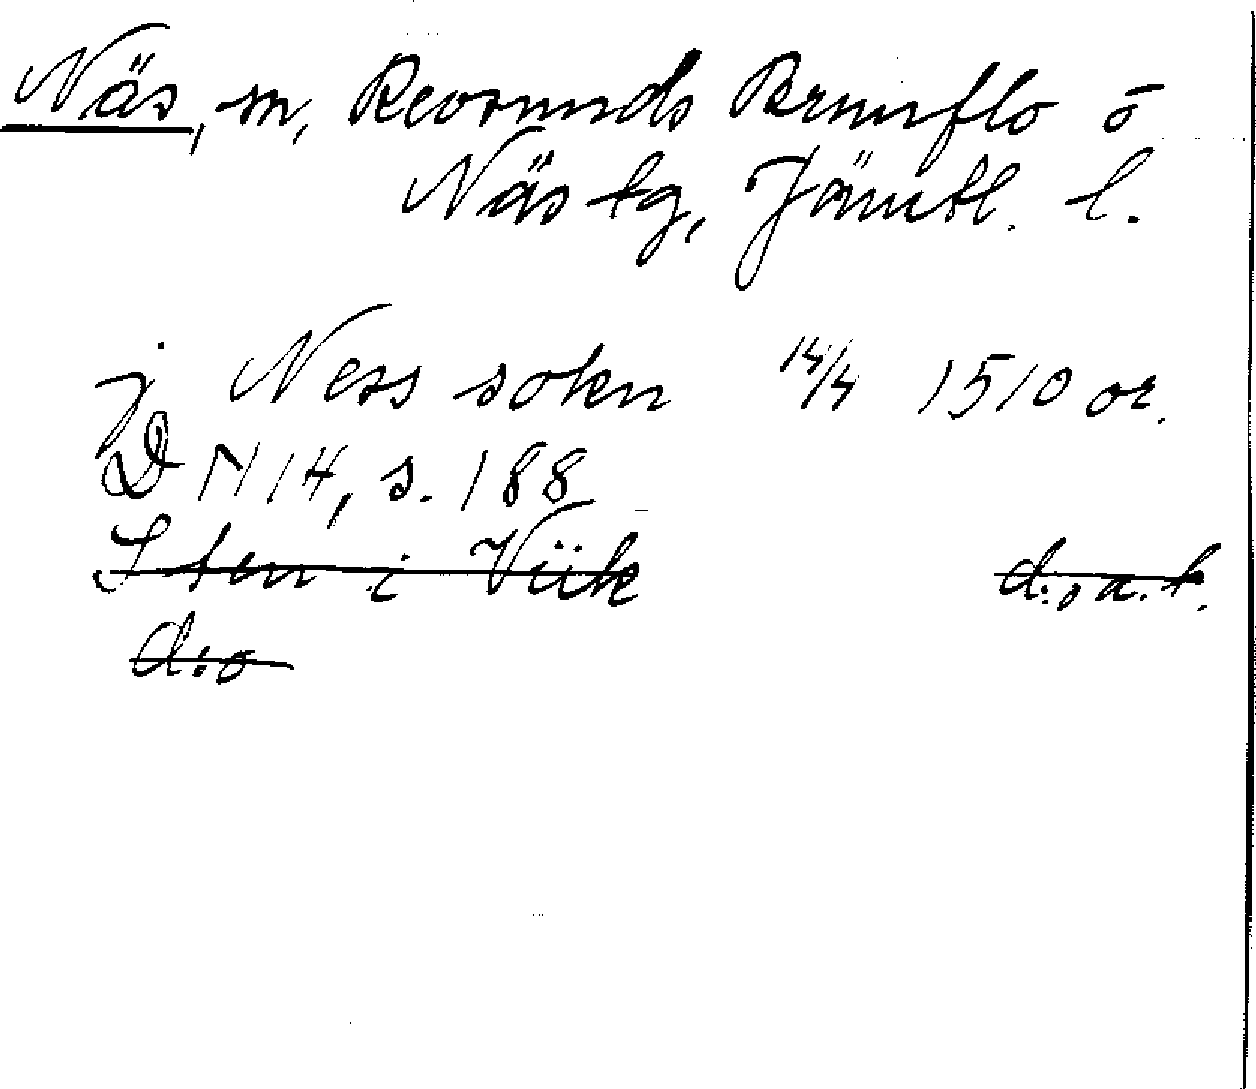 Näs, sn, Revsunds Brunflo o
Näs tg, Jämtl. l.
j Ness sokn 14/4 1510 or.
DN 14, s. 188
Sten i Viik d:o a. st.
d:o